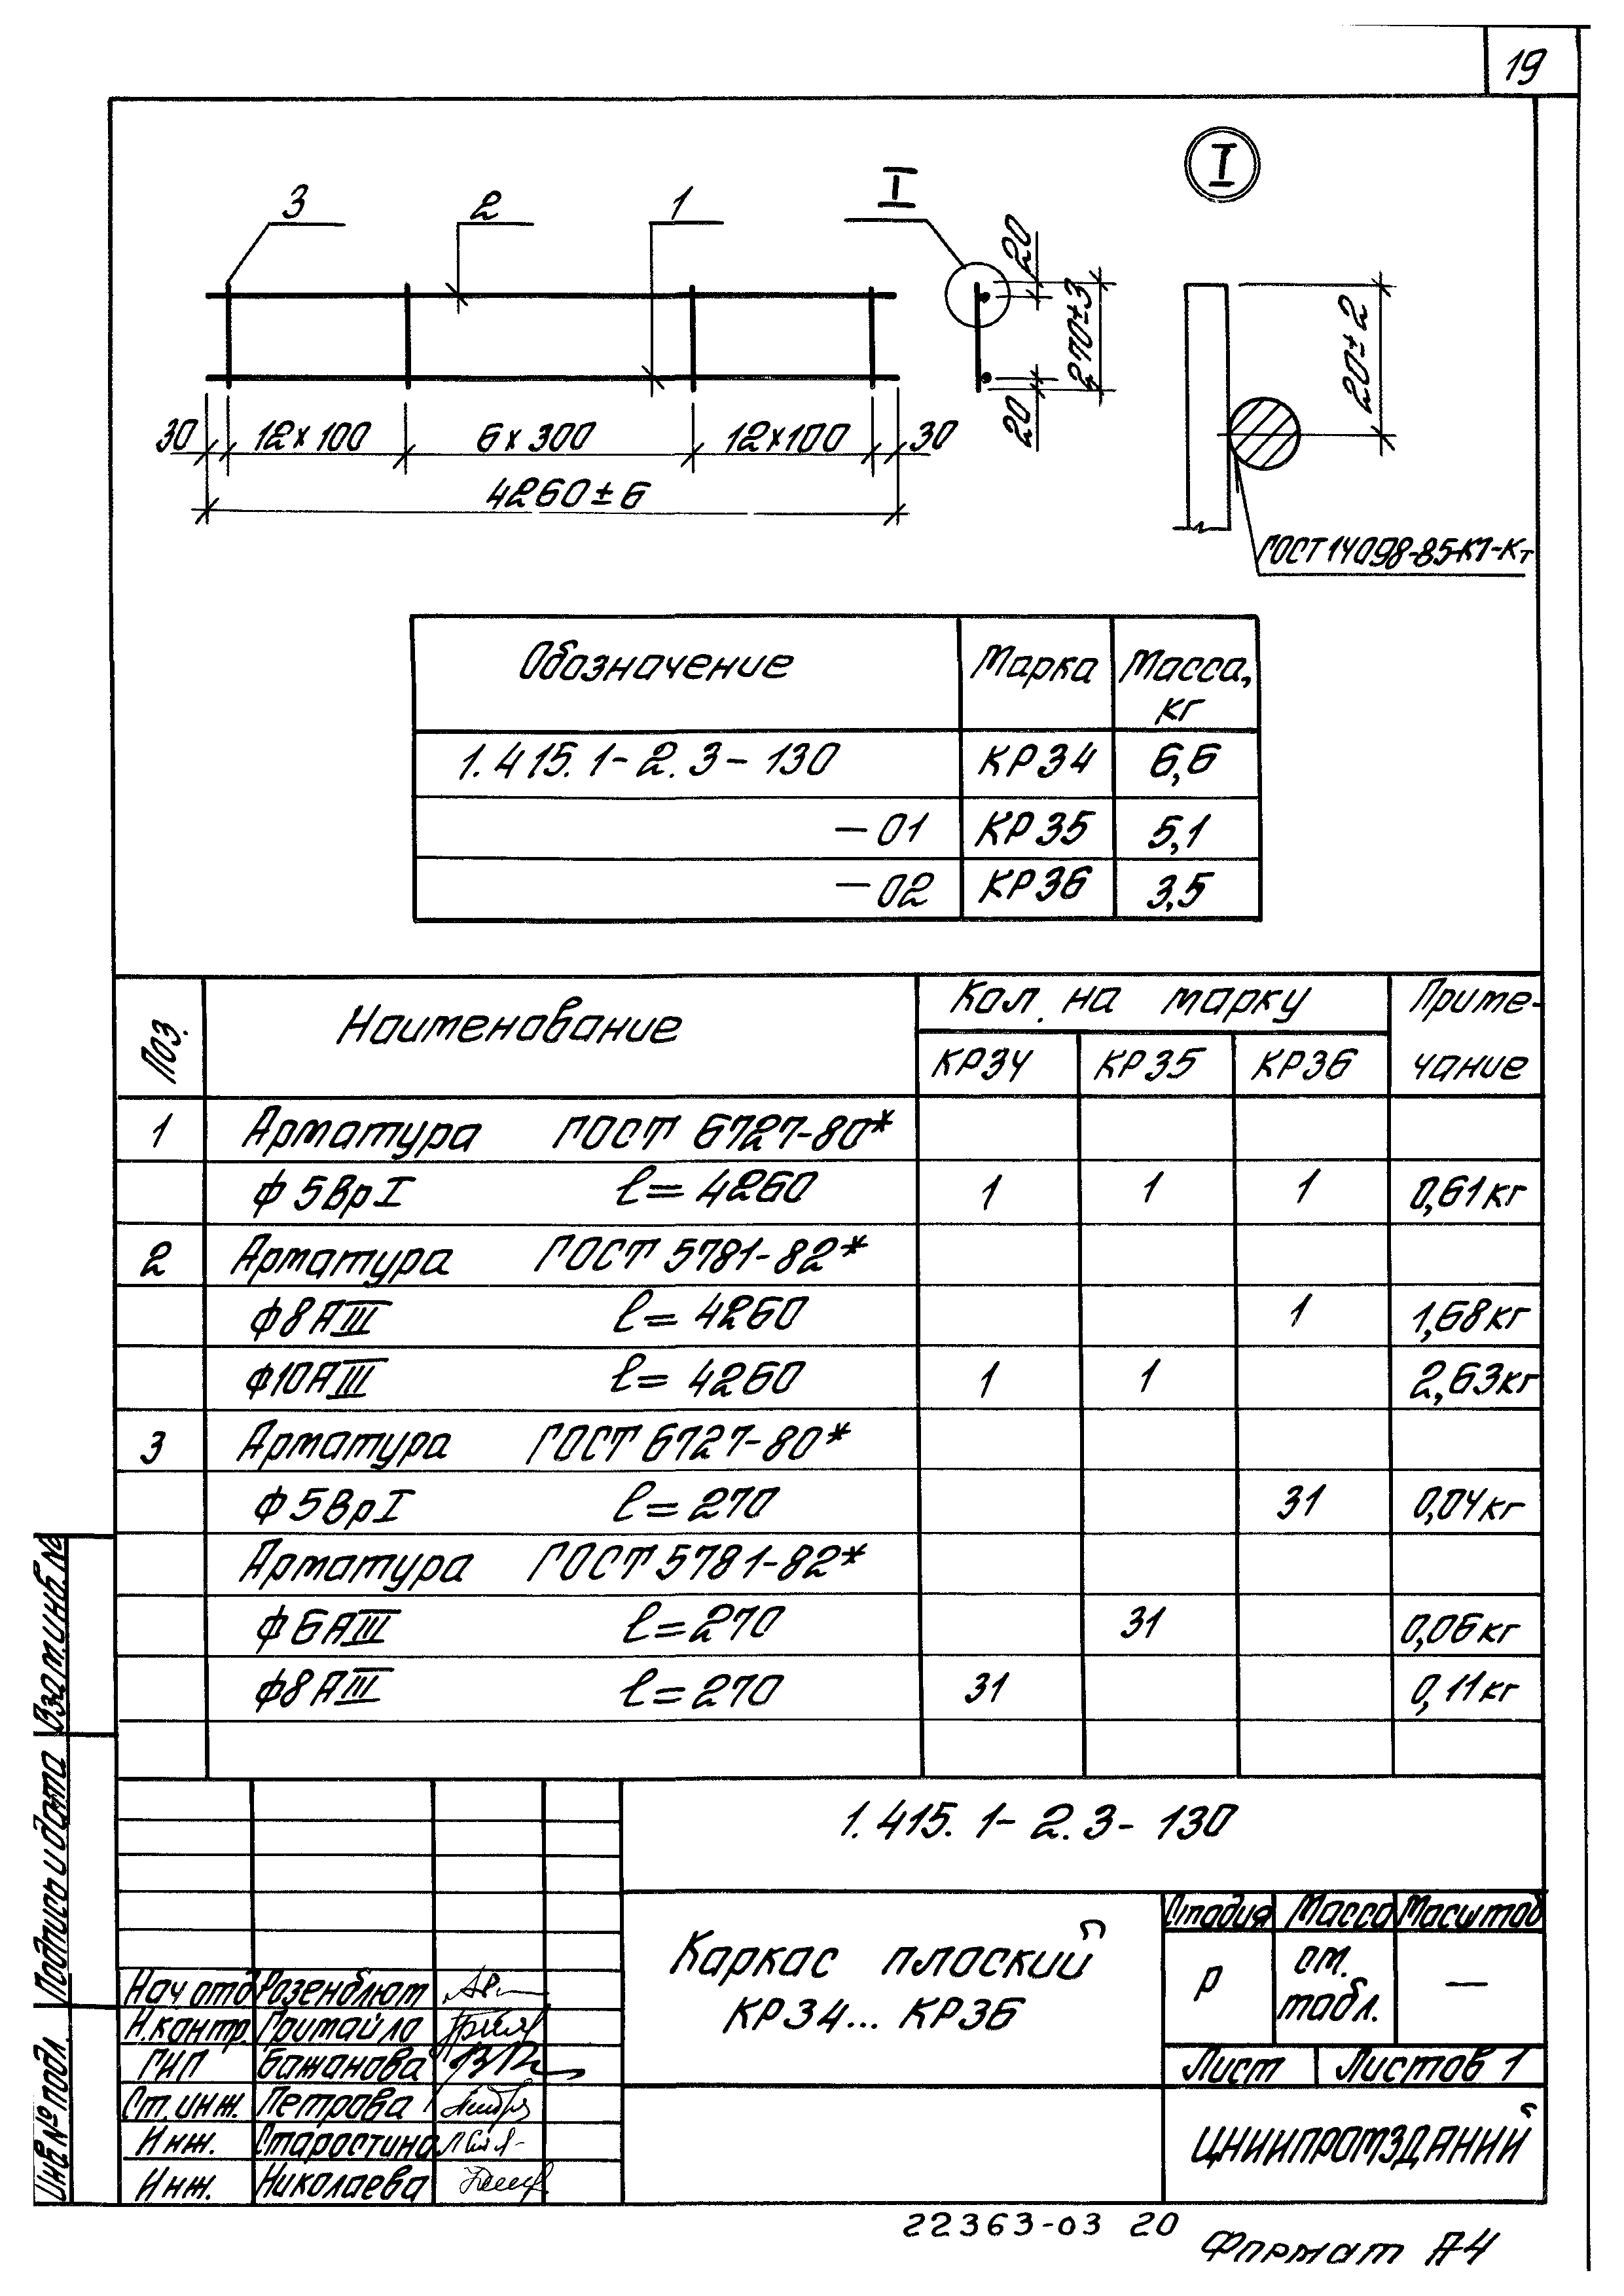 19
3 2 1 I I
20
270±3
20
20±2
30 12×100 6×300 12×100 30
4260±6
ГОСТ 14098-85-К1-Кт
Обозначение Марка Масса, кг
1.415.1-2.3-130 КР34 6,6
-01 КР35 5,1
-02 КР36 3,5
Поз. Наименование Кол. на марку Приме-
КР34 КР35 КР36 чание
1 Арматура ГОСТ 6727-80*
Ф5ВрI ℓ=4260 1 1 1 0,61кг
2 Арматура ГОСТ 5781-82*
Ф8АIII ℓ=4260 1 1,68кг
Ф10АIII ℓ=4260 1 1 2,63кг
3 Арматура ГОСТ 6727-80*
Ф5ВрI ℓ=270 31 0,04кг
Арматура ГОСТ 5781-82*
Ф6АIII ℓ=270 31 0,06кг
Ф8АIII ℓ=270 31 0,11кг
Взам.инв.№
Подпись и дата
Инв.№ подл.
1.415.1-2.3-130
Каркас плоский
КР34...КР36
Стадия Масса Масштаб
Р см. табл. —
Лист Листов 1
ЦНИИПРОМЗДАНИЙ
Нач отд Розенблют
Н.контр. Гритайло
ГИП Бажанова
Ст.инж. Петрова
Инж. Старостина
Инж. Николаева
22363-03 20
Формат А4